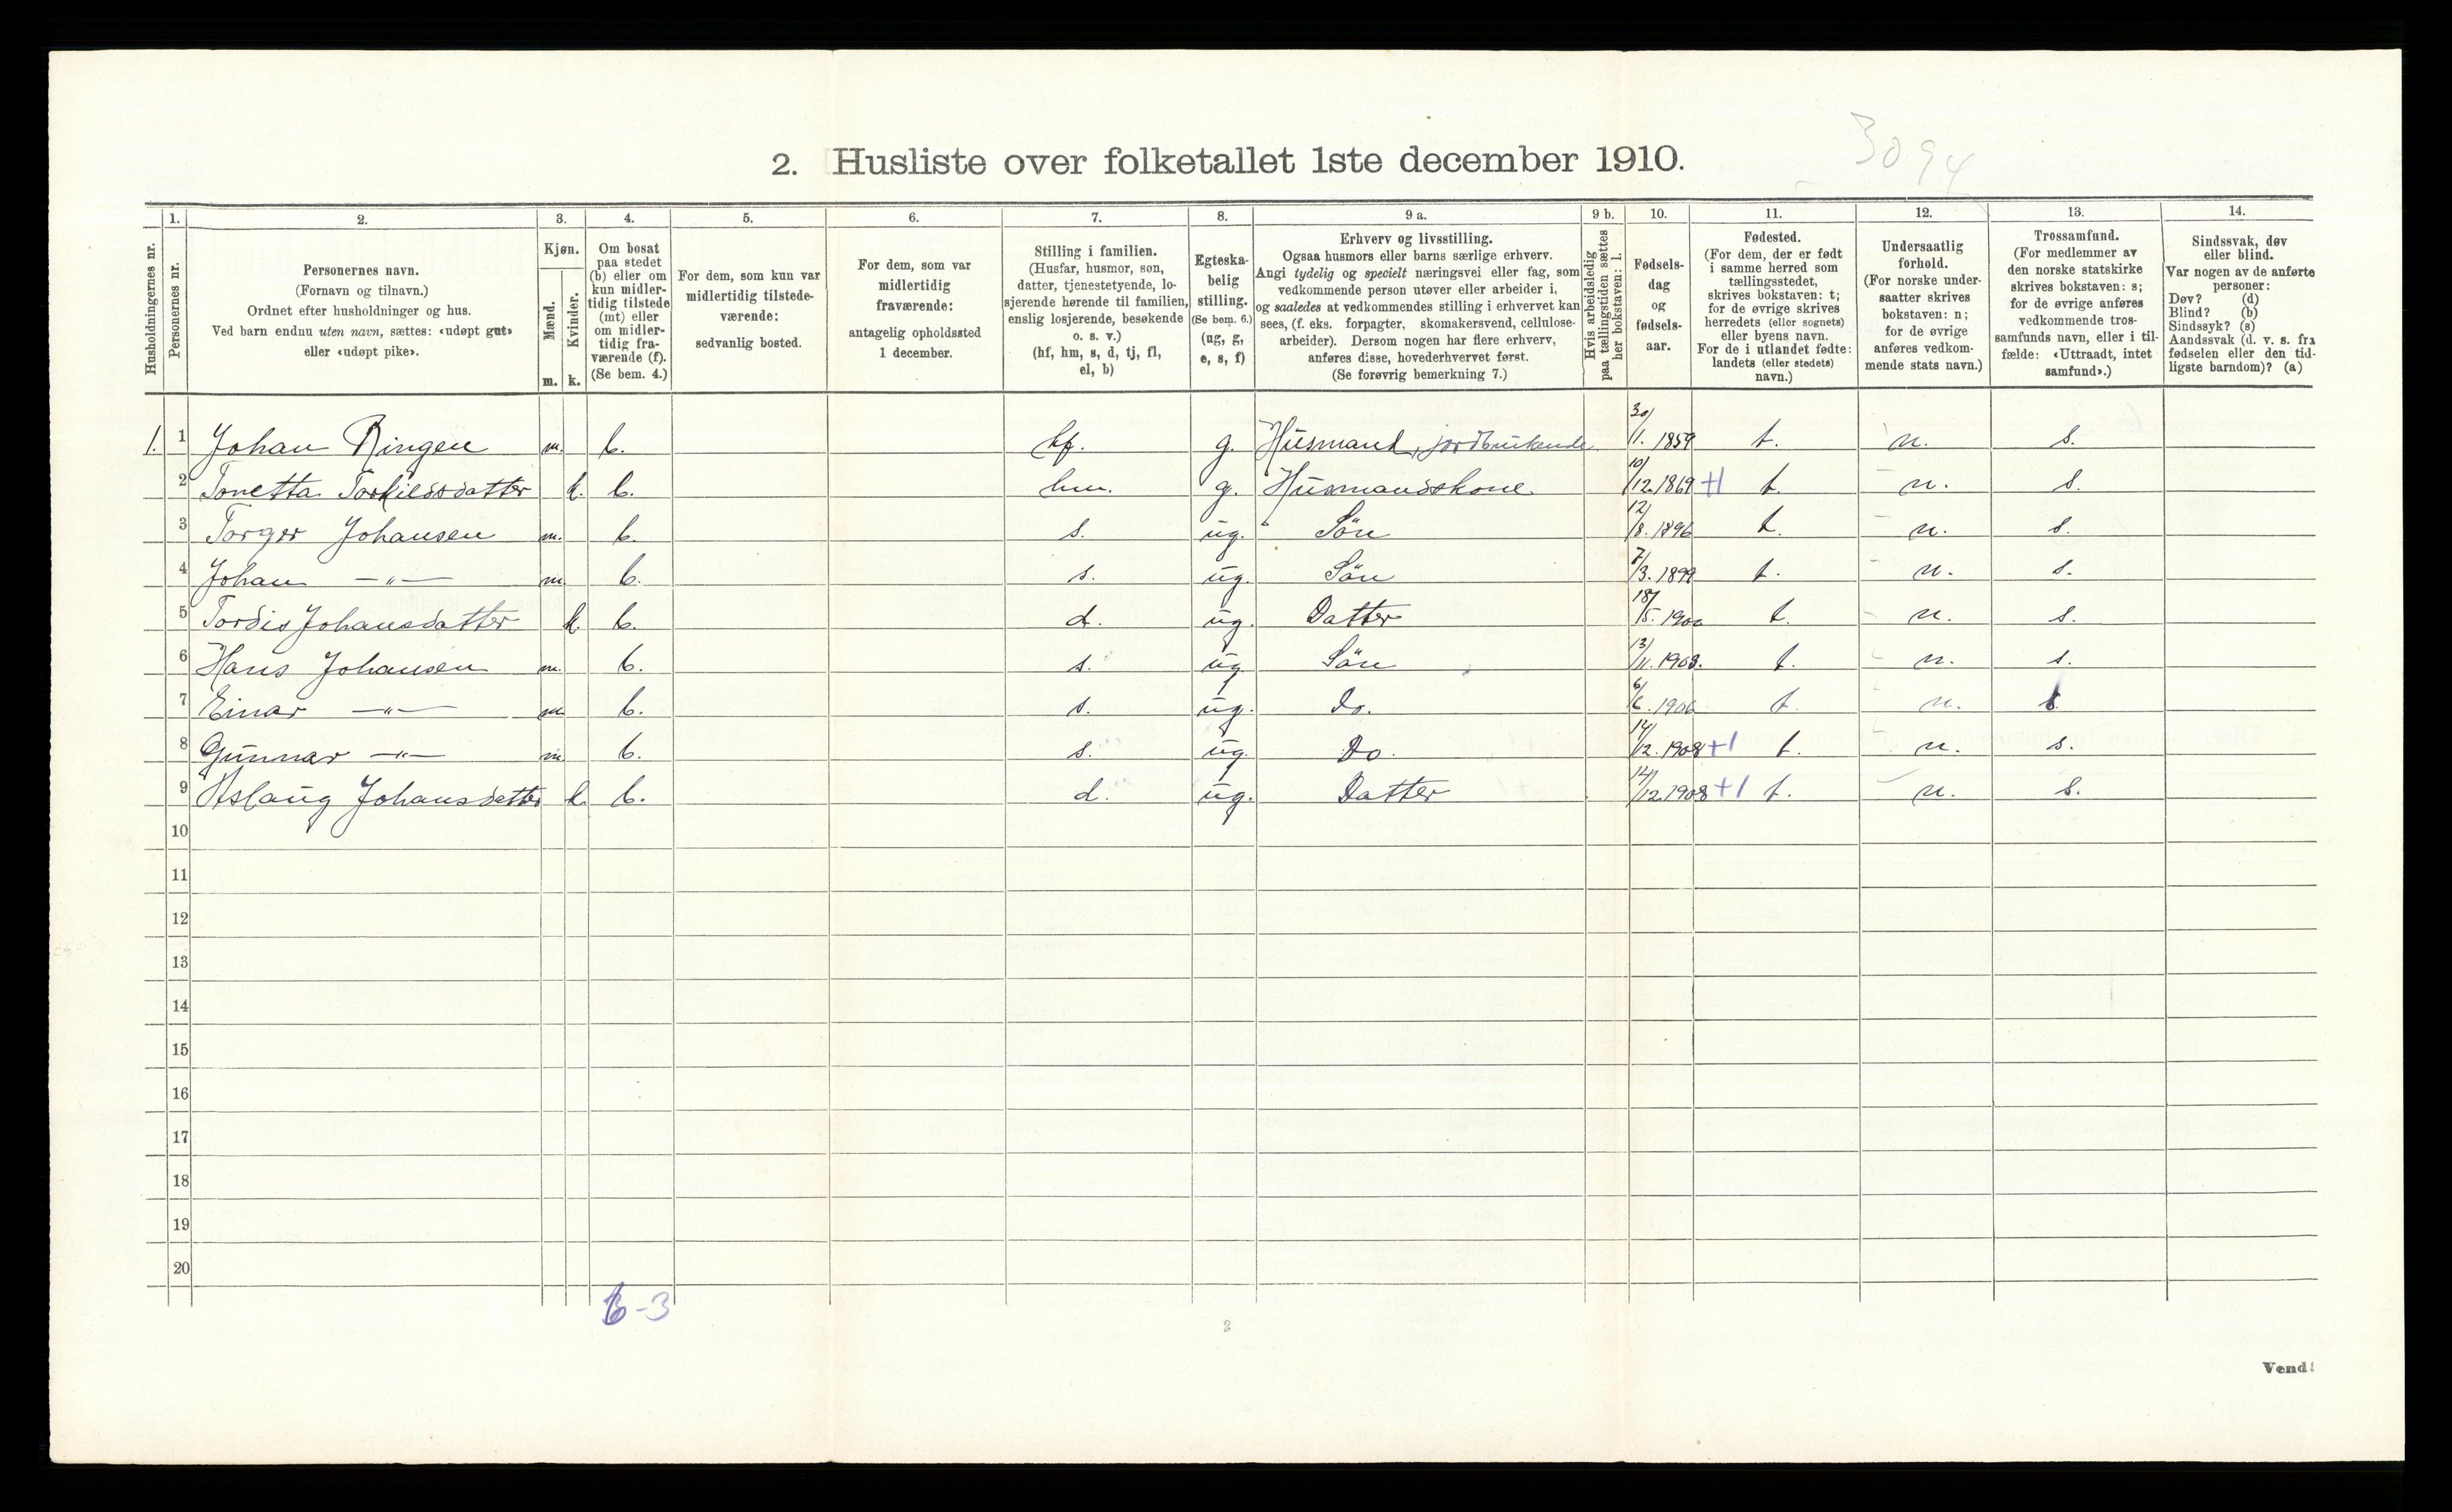 3094
2. Husliste over folketallet 1ste december 1910.
1. 2. 3. 4. 5. 6. 7. 8. 9 a. 9 b. 10. 11. 12. 13. 14.
Husholdningernes nr.
Personernes nr.
Personernes navn.
(Fornavn og tilnavn.)
Ordnet efter husholdninger og hus.
Ved barn endnu uten navn, sættes: «udøpt gut»
eller «udøpt pike».
Kjøn.
Mænd.
Kvinder.
m. k.
Om bosat
paa stedet
(b) eller om
kun midler-
tidig tilstede
(mt) eller
om midler-
tidig fra-
værende (f).
(Se bem. 4.)
For dem, som kun var
midlertidig tilstede-
værende:
sedvanlig bosted.
For dem, som var
midlertidig
fraværende:
antagelig opholdssted
1 december.
Stilling i familien.
(Husfar, husmor, søn,
datter, tjenestetyende, lo-
sjerende hørende til familien,
enslig losjerende, besøkende
o. s. v.)
(hf, hm, s, d, tj, fl,
el, b)
Egteska-
belig
stilling.
(Se bem. 6.)
(ug, g,
e, s, f)
Erhverv og livsstilling.
Ogsaa husmors eller barns særlige erhverv.
Angi tydelig og specielt næringsvei eller fag, som
vedkommende person utøver eller arbeider i,
og saaledes at vedkommendes stilling i erhvervet kan
sees, (f. eks. forpagter, skomakersvend, cellulose-
arbeider). Dersom nogen har flere erhverv,
anføres disse, hovederhvervet først.
(Se forøvrig bemerkning 7.)
Hvis arbeidsledig
paa tællingstiden sættes
her bokstaven: l.
Fødsels-
dag
og
fødsels-
aar.
Fødested.
(For dem, der er født
i samme herred som
tællingsstedet,
skrives bokstaven: t;
for de øvrige skrives
herredets (eller sognets)
eller byens navn.
For de i utlandet fødte:
landets (eller stedets)
navn.)
Undersaatlig
forhold.
(For norske under-
saatter skrives
bokstaven: n;
for de øvrige
anføres vedkom-
mende stats navn.)
Trossamfund.
(For medlemmer av
den norske statskirke
skrives bokstaven: s;
for de øvrige anføres
vedkommende tros-
samfunds navn, eller i til-
fælde: «Uttraadt, intet
samfund».)
Sindssvak, døv
eller blind.
Var nogen av de anførte
personer:
Døv? (d)
Blind? (b)
Sindssyk? (s)
Aandssvak (d. v. s. fra
fødselen eller den tid-
ligste barndom)? (a)
1. 1 Johan Ringen m. b. hf. g. Husmand, jordbrukende 30/1. 1859 t. n. s.
2 Tonetta Torkildsdatter k. b. hm. g. Husmandskone 10/12. 1869 +1 t. n. s.
3 Torger Johansen m. b. s. ug. Sön 12/8. 1896 t. n. s.
4 Johan —"— m. b. s. ug. Sön 7/3. 1899 t. n. s.
5 Tordis Johansdatter k. b. d. ug. Datter 18/5. 1900 t. n. s.
6 Hans Johansen m. b. s. ug. Sön 13/11. 1903. t. n. s.
7 Einar —"— m. b. s. ug. Do. 6/6. 1906 t. n. s.
8 Gunnar —"— m. b. s. ug. Do. 14/12. 1908 +1 t. n. s.
9 Aslaug Johansdatter k. b. d. ug. Datter 14/12. 1908 +1 t. n. s.
10
11
12
13
14
15
16
17
18
19
20
6-3
2
Vend!